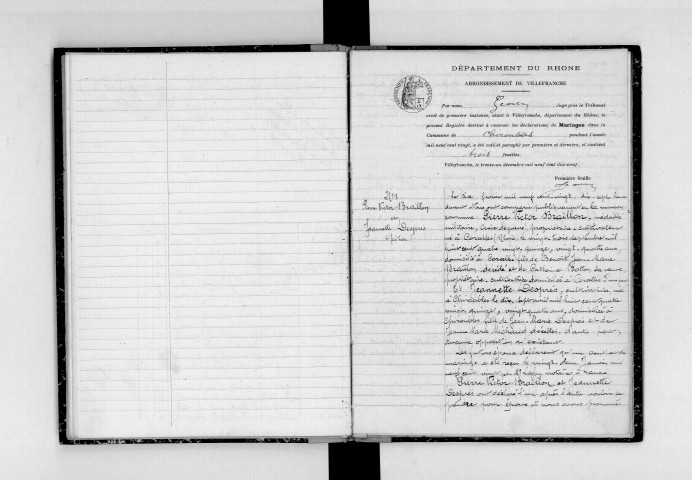 DÉPARTEMENT DU RHONE
ARRONDISSEMENT DE VILLEFRANCHE
Par nous, Juge près le Tribunal
civil de première instance, séant à Villefranche, département du Rhône, le
présent Registre destiné à recevoir les déclarations de Mariages dans la
Commune de Chiroubles pendant l'année
mil neuf cent vingt, a été coté et paraphé par première et dernière, et contient
trois feuilles.
Villefranche, le trente-un décembre mil neuf cent dix-neuf.
Première feuille
N°1
Pierre Victor Braillon
et
Jeannette Després
Le dix février mil neuf cent vingt, dix
devant Nous ont comparu publiquement en la maison
commune Pierre Victor Braillon, médaille
militaire, croix de guerre, propriétaire cultivateur
né à Corcelles Rhône, le vingt trois septembre mil
huit cent quatre vingt quinze, vingt quatre ans,
domicilié à Corcelles fils de Benoît Jean Marie
Braillon décédé et de sa veuve
propriétaire cultivatrice domiciliée à Corcelles
Et Jeannette Després, née
à Chiroubles le dix sept avril mil huit cent quatre
vingt quinze, vingt quatre ans, domiciliée à
Chiroubles, fille de Jean Marie Després et de
Jeanne Marie Michaud décédés, d'autre part,
Aucune opposition n'existant
Les futurs époux déclarent qu'un contrat de
mariage a été reçu le vingt deux Janvier mil
neuf cent vingt par Me notaire à
Pierre Victor Braillon et Jeannette
Després ont déclaré l'un après l'autre vouloir se
prendre pour époux et nous avons prononcé